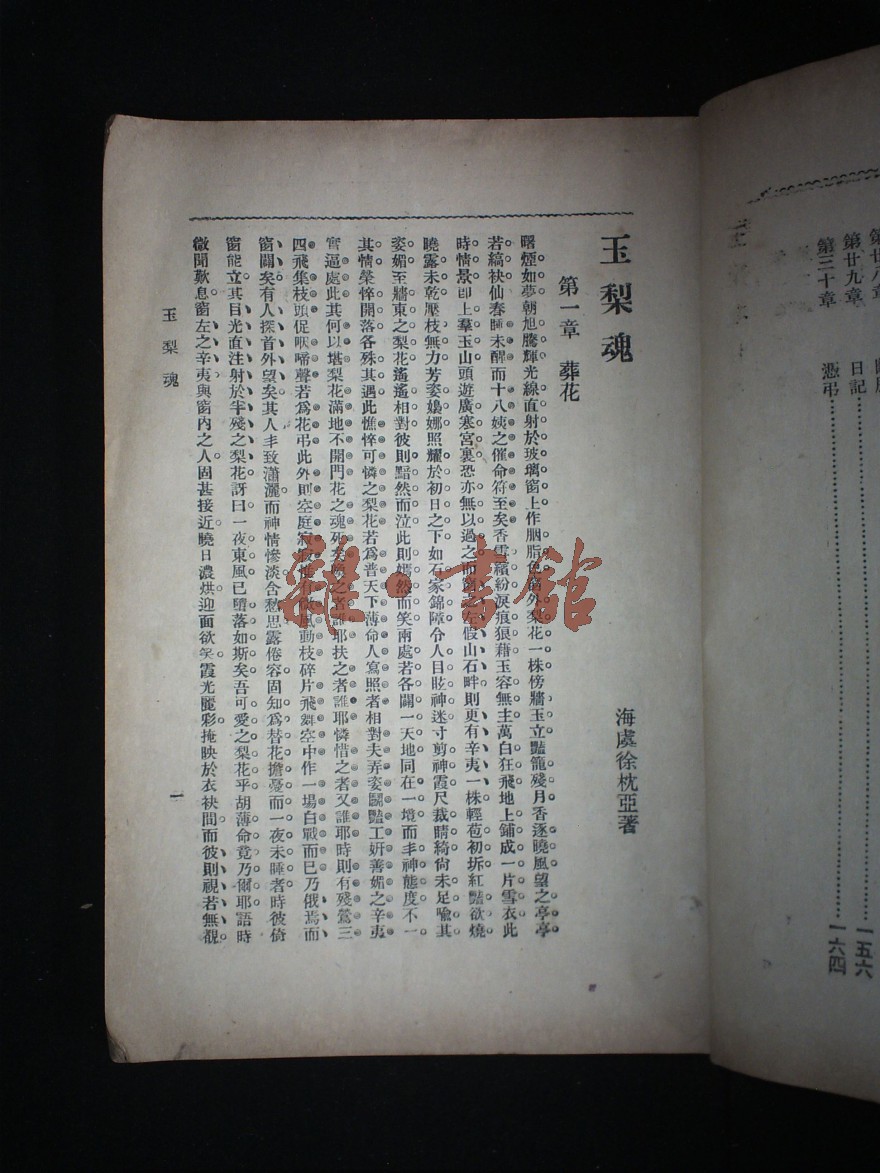 第廿九章 日記……一五六
第三十章 憑弔……一六四
玉梨魂
海虞徐枕亞著
第一章 葬花
曙煙如夢朝旭騰輝光線直射於玻璃窗上作胭脂色窗外梨花一株傍牆玉立豔籠殘月香逐曉風望之亭亭
若縞袂仙春睡未醒而十八姨之催命符至矣香雪繽紛淚痕狼藉玉容無主萬白狂飛地上鋪成一片雪衣此
時情景卽上羣玉山頭遊廣寒宮裏恐亦無以過之而窗之左假山石畔則更有辛夷一株輕苞初坼紅豔欲燒
曉露未乾壓枝無力芳姿嬝娜照耀於初日之下如石家錦障令人目眩神迷寸剪神霞尺裁晴綺尙未足喩其
姿媚至牆東之梨花遙遙相對彼則黯然而泣此則嫣然而笑兩處若各闢一天地同在一境而丰神態度不一
其情榮悴開落各殊其遇此憔悴可憐之梨花若爲普天下薄命人寫照者相對夫弄姿鬪豔工妍善媚之辛夷
實逼處此其何以堪梨花滿地不開門花之魂死矣喚之者誰耶扶之者誰耶憐惜之者又誰耶時則有殘鶯三
四飛集枝頭促咽啼聲若爲花弔此外則空庭寂寂惟有微風動枝碎片飛舞空中作一場白戰而已乃俄焉而
窗闢矣有人探首外望矣其人丰致瀟灑而神情慘淡含愁思露倦容固知爲替花擔憂而一夜未睡者時彼倚
窗能立其目光直注射於半殘之梨花訝曰一夜東風已墮落如斯矣吾可愛之梨花乎胡薄命竟乃爾耶語時
微聞歎息窗左之辛夷與窗內之人固甚接近曉日濃烘迎面欲笑霞光麗彩掩映於衣袂間而彼則視若無覩
玉梨魂
一
雜·書館